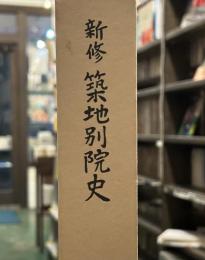 新修 築地別院史